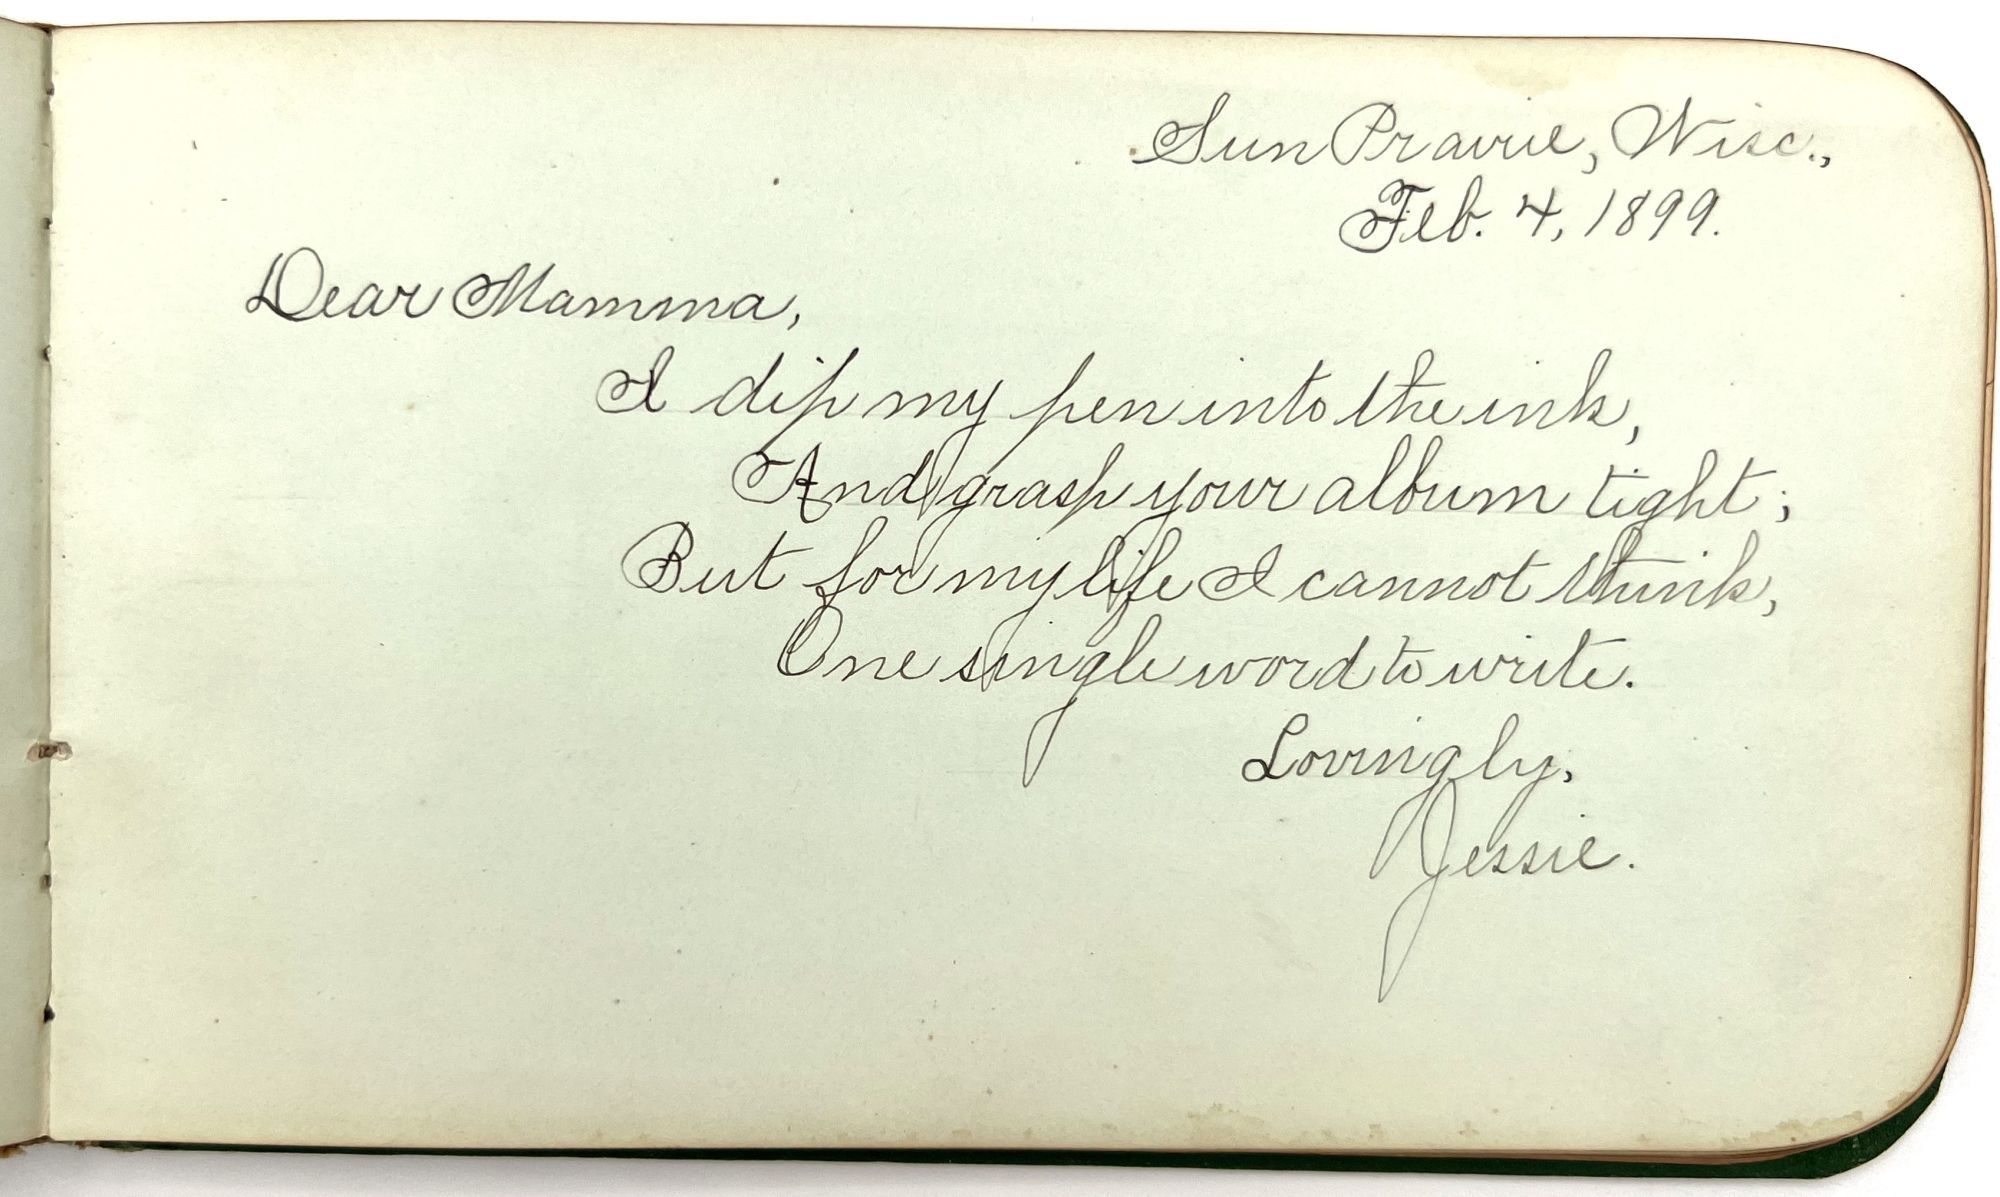 Sun Prairie, Wisc.,
Feb. 4, 1899.
Dear Mamma,
I dip my pen into the ink,
And grasp your album tight;
But for my life I cannot think,
One single word to write.
Lovingly,
Jessie.